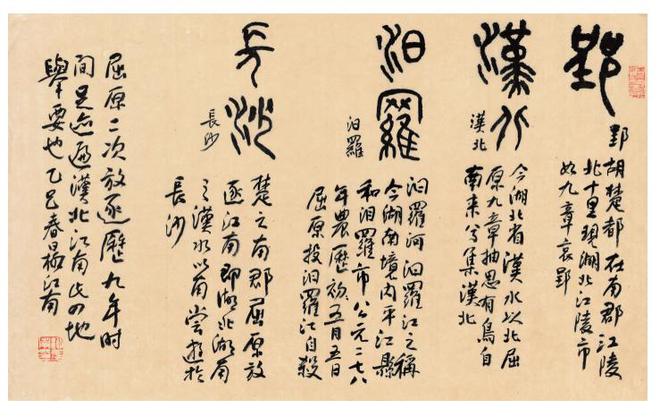 郢
郢
楚都在南郡江陵
北十里現湖北江陵市
如九章哀郢
漢北
漢北
今湖北省漢水以北屈
原九章抽思有鳥自
南來兮集漢北
汨羅
汨羅
汨羅河汨羅江之稱
今湖南境內平江縣
和汨羅市公元二七八
年農歷五月五日
屈原投汨羅江自殺
長沙
長沙
楚之南郡屈原放
逐江南即湖北湖南
之漢水以南嘗遊於
長沙
屈原二次放逐歷九年時
間足迹遍漢北江南此四地
舉要也乙巳春江南